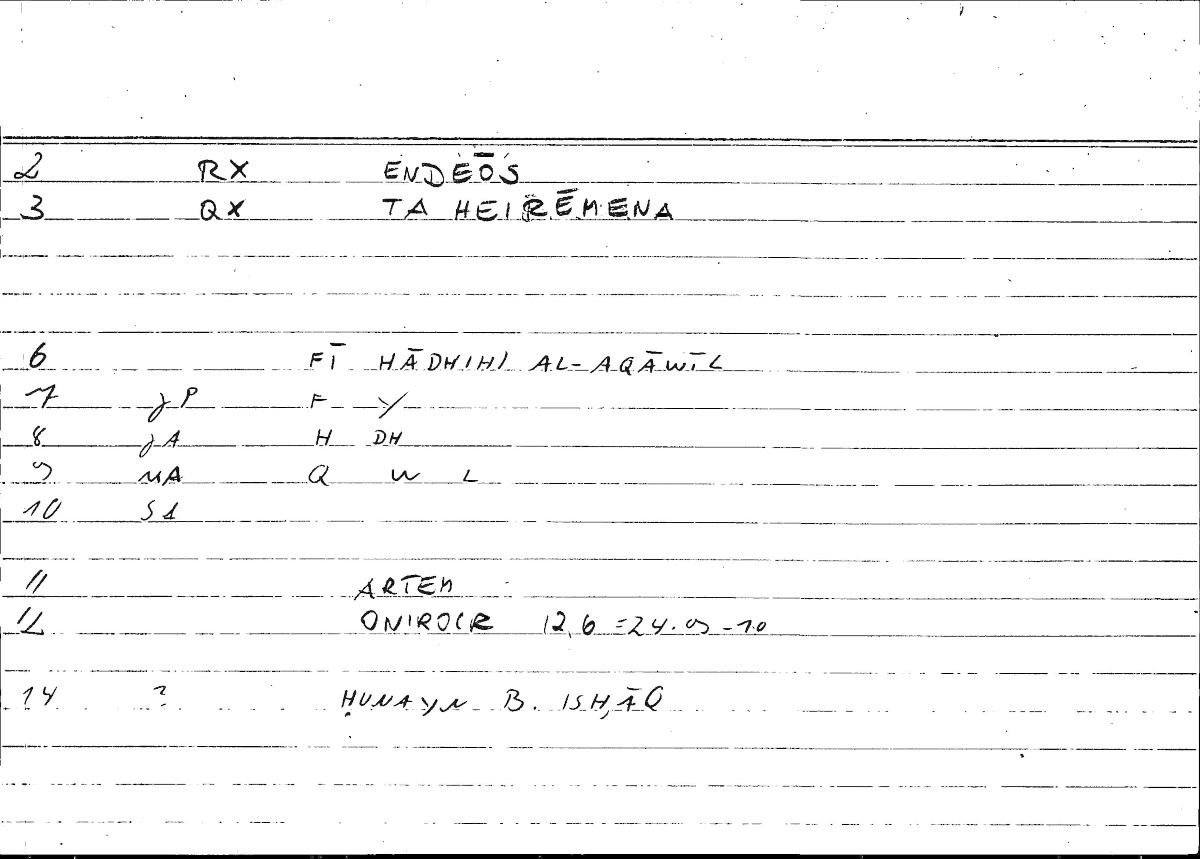 2 RX ENDEŌS
3 QX TA HEIRĒMENA
6 FĪ HĀDHIHI AL-AQĀWĪL
7 JP F Y
8 JA H DH
9 MA Q W L
10 S1
11 ARTEM
12 ONIROCR 12,6 =24.9-10
14 ? ḤUNAYN B. ISḤĀQ